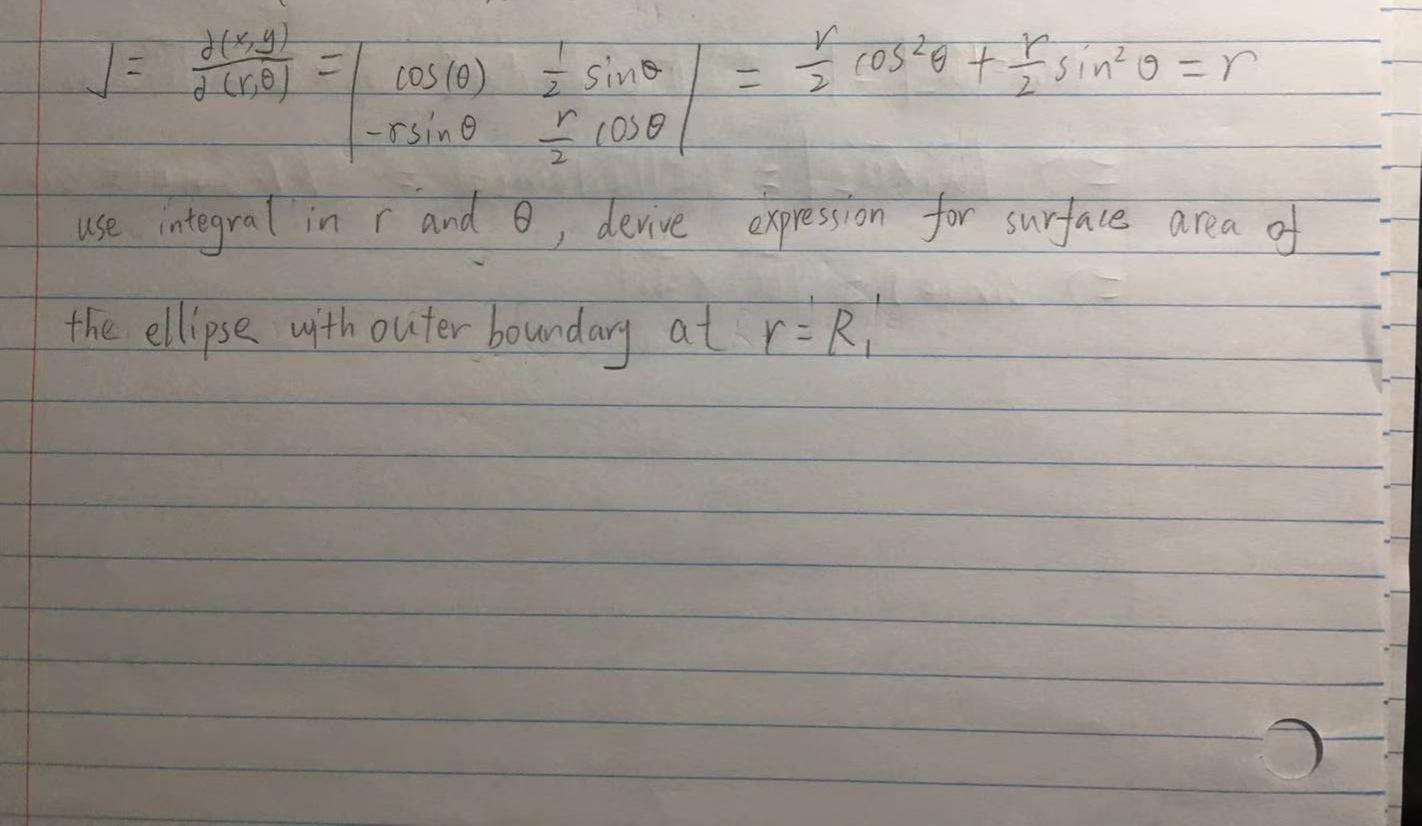 J = ∂(x,y)/∂(r,θ) = | cos(θ) 1/2 sinθ | = r/2 cos²θ + r/2 sin²θ = r
| -rsinθ r/2 cosθ |
use integral in r and θ, derive expression for surface area of
the ellipse with outer boundary at r = R₁